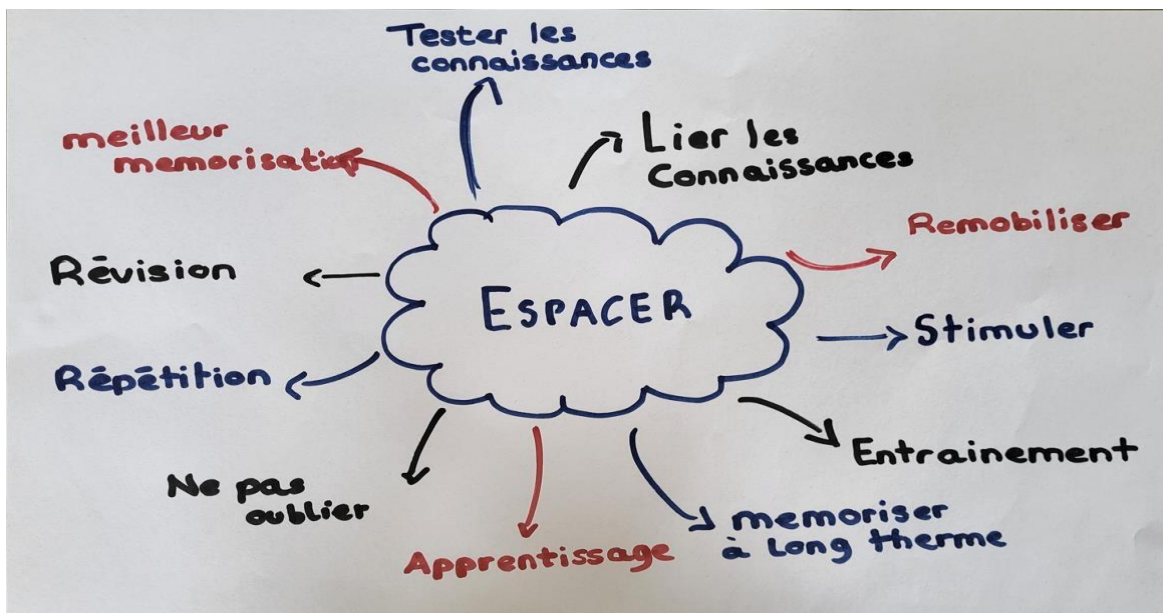 Tester les
connaissances
meilleur
memorisation
Lier les
Connaissances
Remobiliser
Révision
ESPACER
Stimuler
Répétition
Entrainement
Ne pas
oublier
memoriser
à long therme
Apprentissage